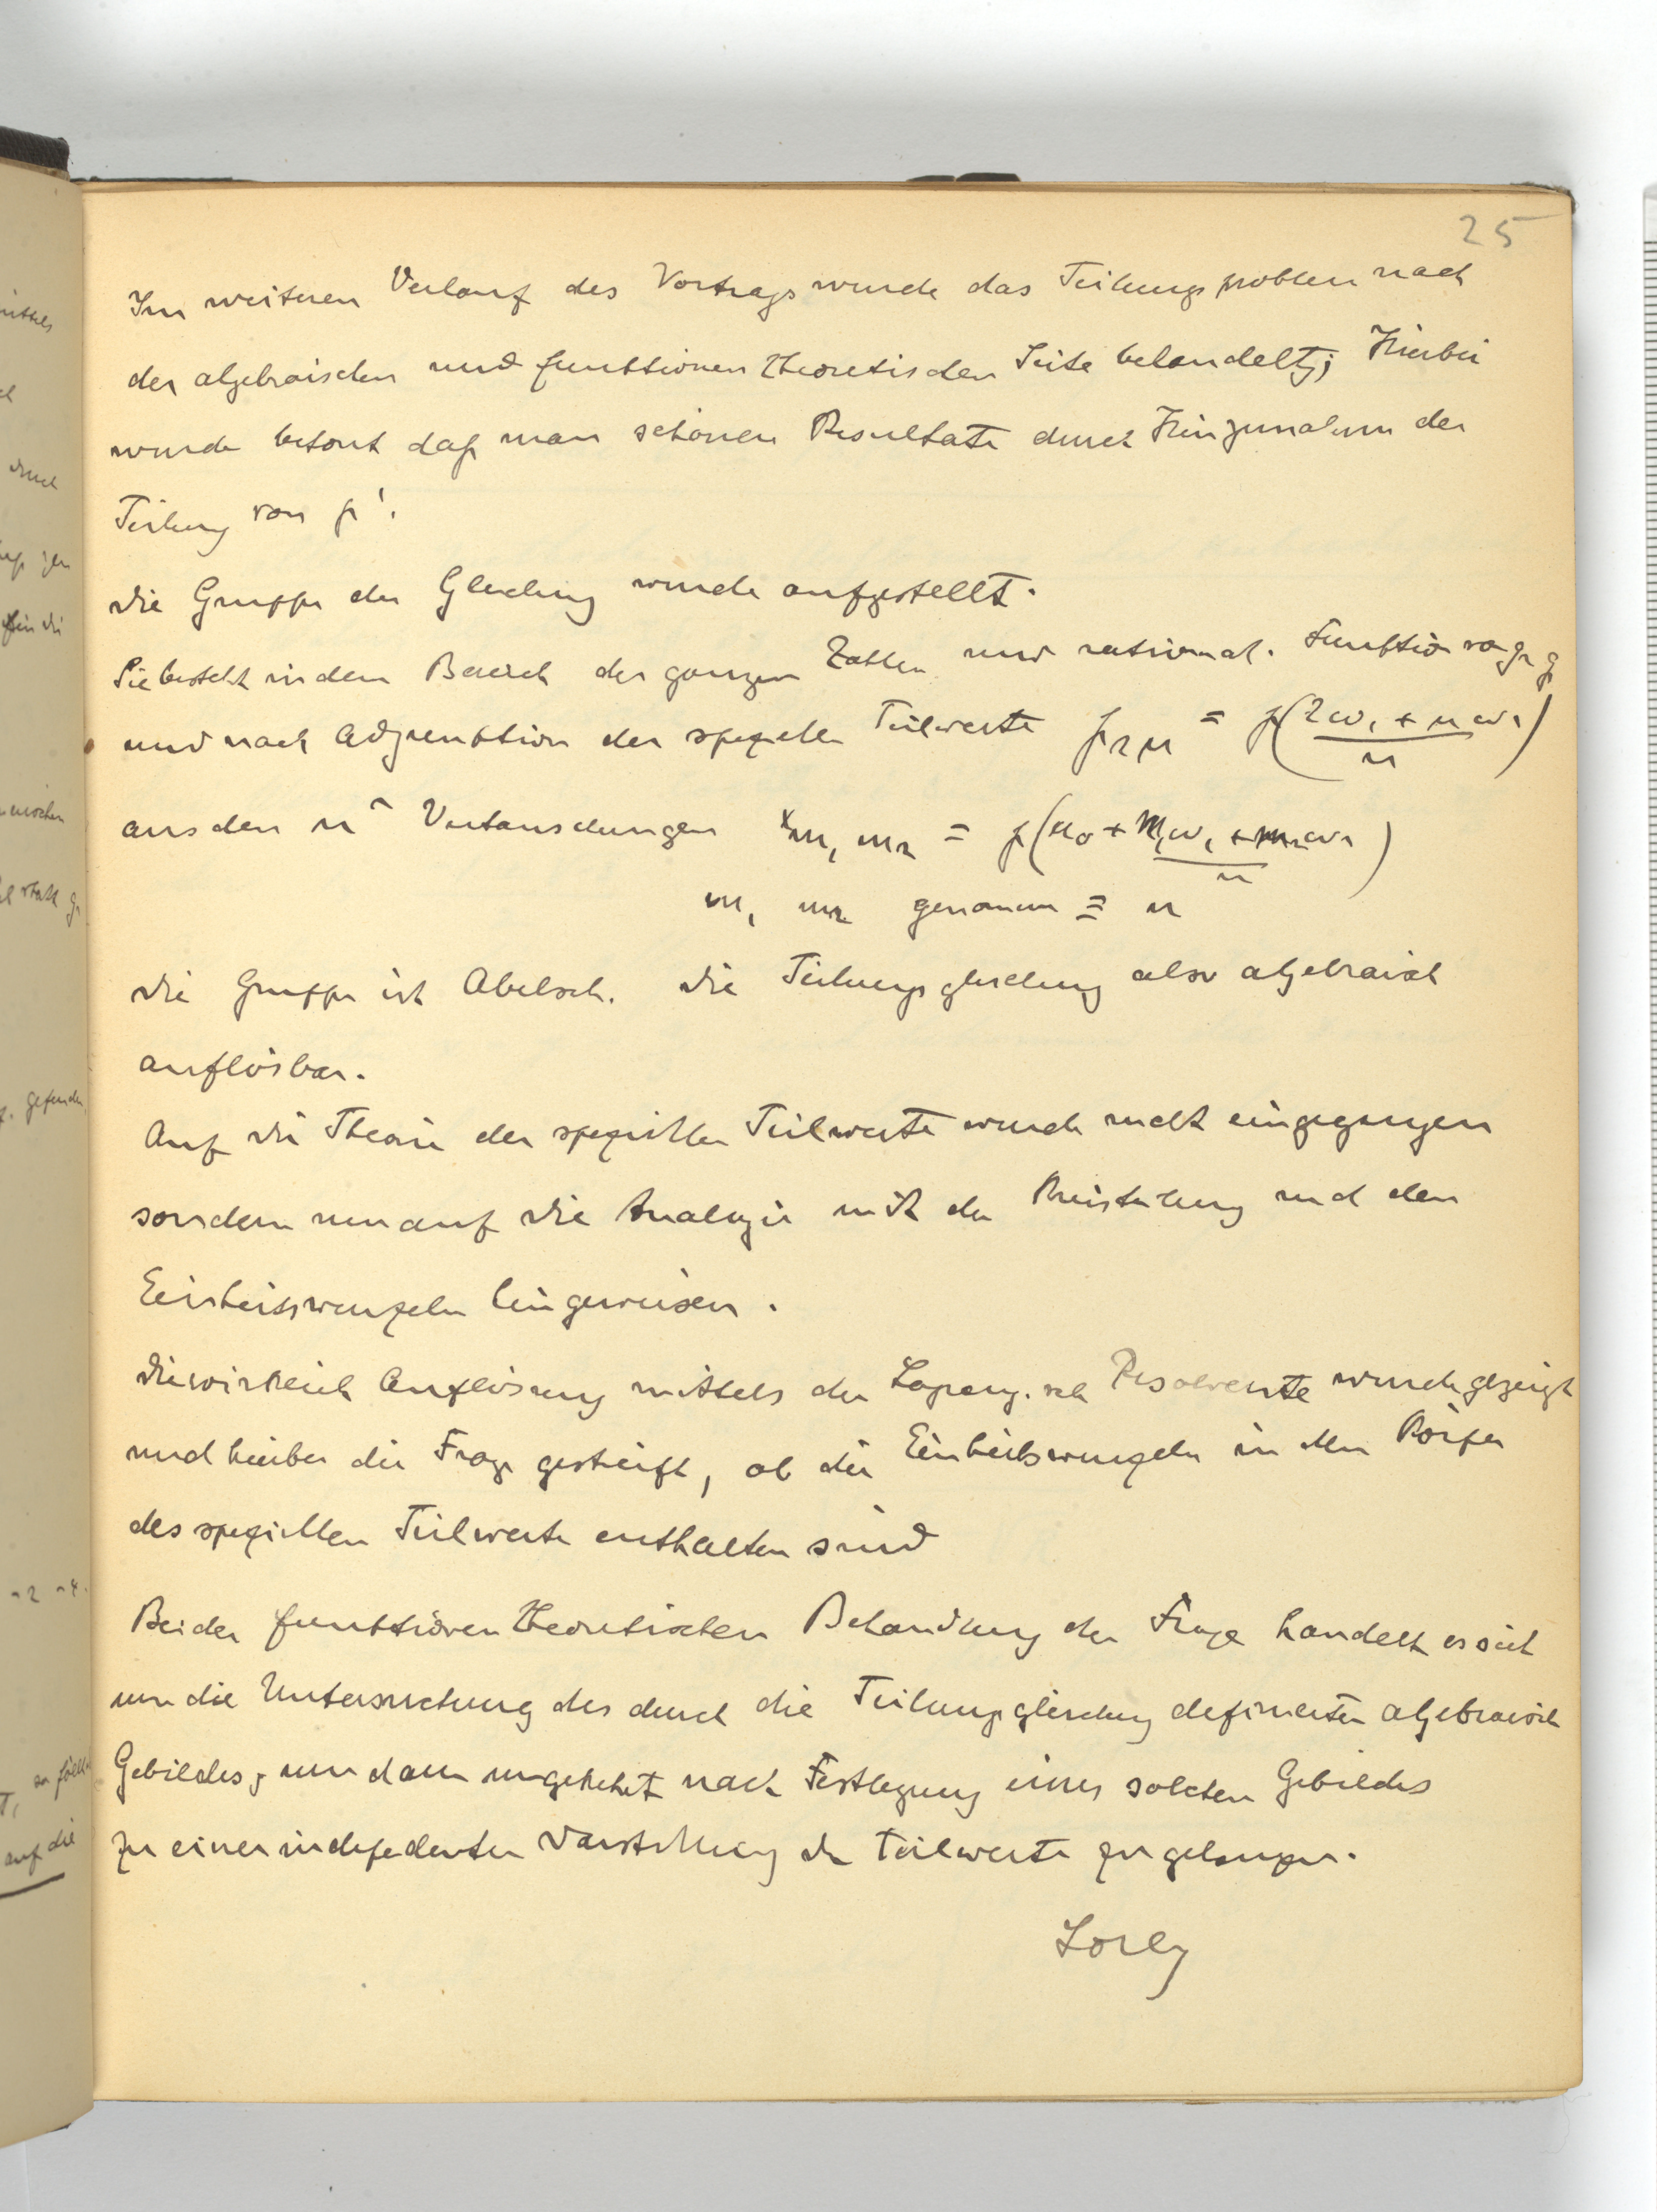 25
Im weiteren Verlauf des Vortrags wurde das Teilungsproblem nach
der algebraischen und funktionentheoretischen Seite behandelt; Hierbei
wurde betont daß man schönere Resultate durch Hinzunahme der
Teilung von ℘'.
Die Gruppe der Gleichung wurde aufgestellt.
Sie besteht in dem Bereich der ganzen Zahlen und rational. Funktio von g₂ g₃
und nach Adjunktion der speziellen Teilwerte ℘λμ = ℘(λω₁ + μω₂ / n)
aus den n² Vertauschungen xm₁ m₂ = ℘(u₀ + m₁ω₁ + m₂ω₂ / n)
m₁ m₂ genomm ≡ n
Die Gruppe ist Abelsch. Die Teilungsgleichung also algebraisch
auflösbar.
Auf die Theorie der speziellen Teilwerte wurde nicht eingegangen
sondern nur auf die Analogie mit der Kreisteilung und den
Einheitswurzeln hingewiesen.
Die wirklich Auflösung mittels der Lagrang.sch Resolvente wurde gezeigt
und hierbei die Frage gestreift, ob die Einheitswurzeln in dem Körper
des speziellen Teilwerte enthalten sind
Bei der funktionentheoretischen Behandlung der Frage handelt es sich
um die Untersuchung des durch die Teilungsgleichung definierten algebraisch
Gebildes, um dann umgekehrt nach Festlegung eines solchen Gebildes
zu einer independenten Darstellung der Teilwerte zu gelangen.
Lorey